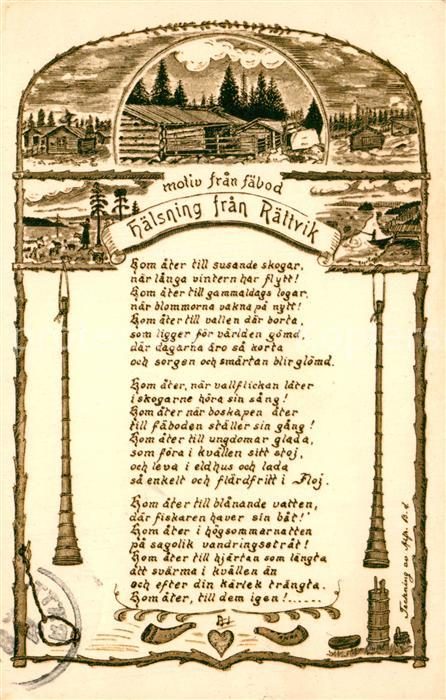 motiv från fäbod
Hälsning från Rättvik
Kom åter till susande skogar,
när långa vintern har flytt!
Kom åter till gammaldags logar,
när blommorna vakna på nytt!
Kom åter till vallen där borta,
som ligger för världen gömd,
där dagarna äro så korta
och sorgen och smärtan blir glömd.
Kom åter, när vallflickan låter
i skogarne höra sin sång!
Kom åter när boskapen åter
till fäboden ställer sin gång!
Kom åter till ungdomar glada,
som föra i kvällen sitt stoj,
och leva i eldhus och lada
så enkelt och flärdfritt i Floj.
Kom åter till blånande vatten,
där fiskaren haver sin båt!
Kom åter i högsommarnatten
på sagolik vandringsstråt!
Kom åter till hjärtan som längta
att svärma i kvällen än
och efter din kärlek trängta.
Kom åter, till dem igen!......
Teckning av